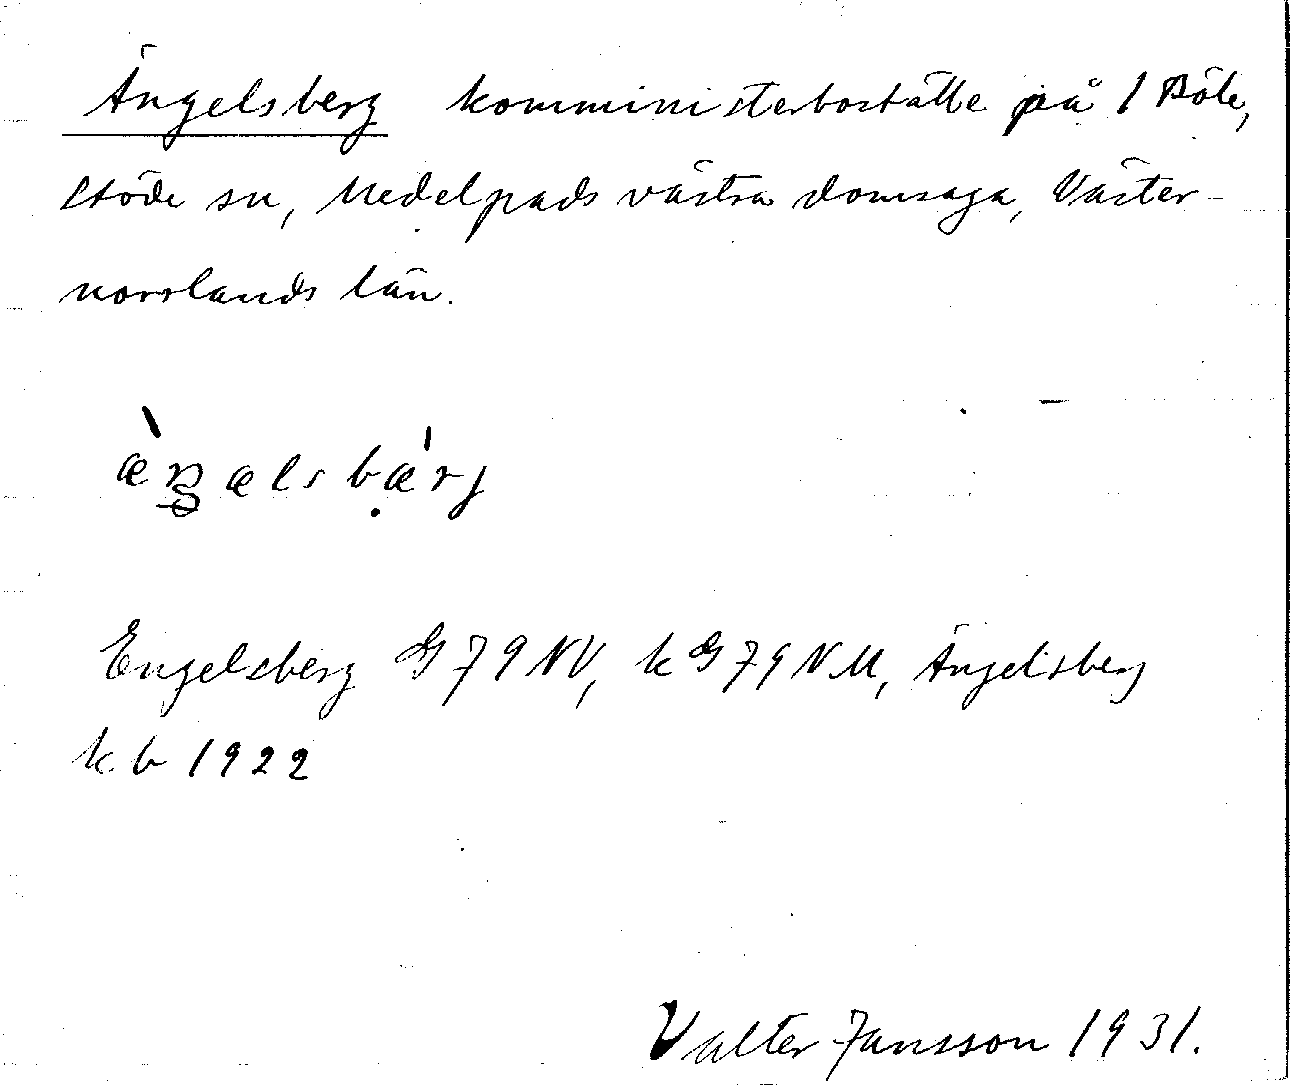 Ängelsberg komministerboställe på 1 Böle,
Stöde sn, Medelpads västra domsaga, Väster-
norrlands län.
æ̀ŋælsbǽ̣rj
Engelsberg G 79 NV, k G 79 NM, Ängelsberg
kb 1922
Valter Jansson 1931.